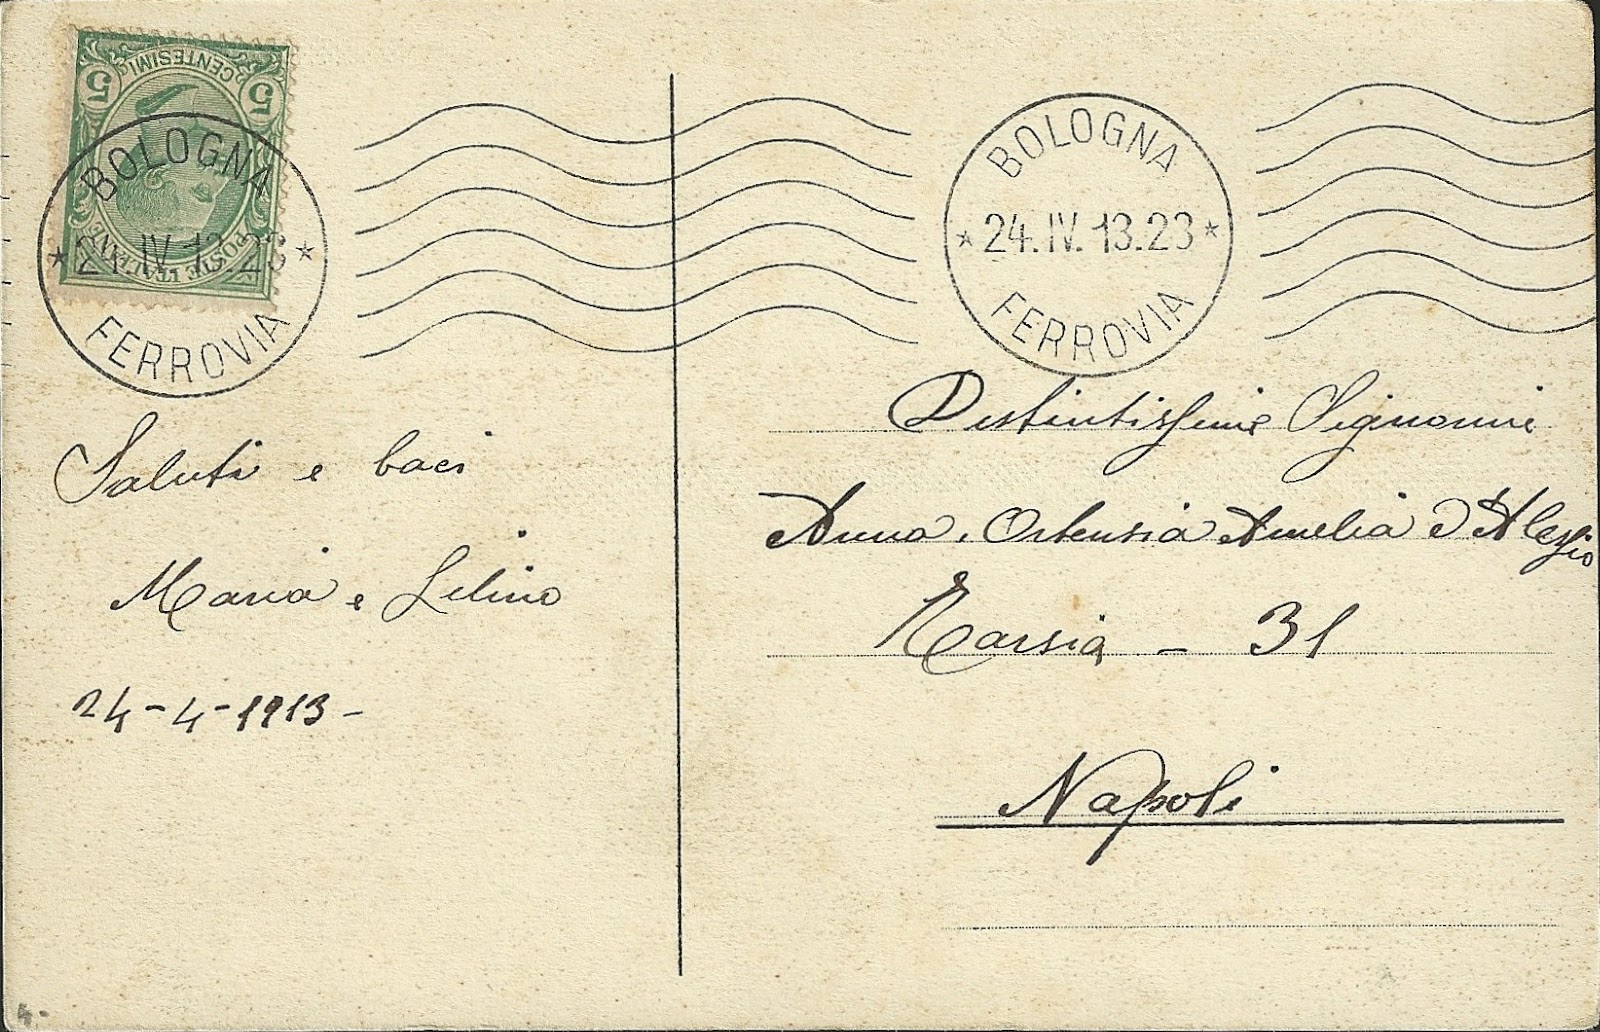 5 CENTESIMI 5
POSTE ITALIANE
BOLOGNA
24.IV.13.23
FERROVIA
BOLOGNA
24.IV.13.23
FERROVIA
Saluti e baci
Maria e Lilino
24-4-1913-
Distintissime Signorine
Anna, Ortensia Amelia D'Alessio
Tarsia - 31
Napoli
4-